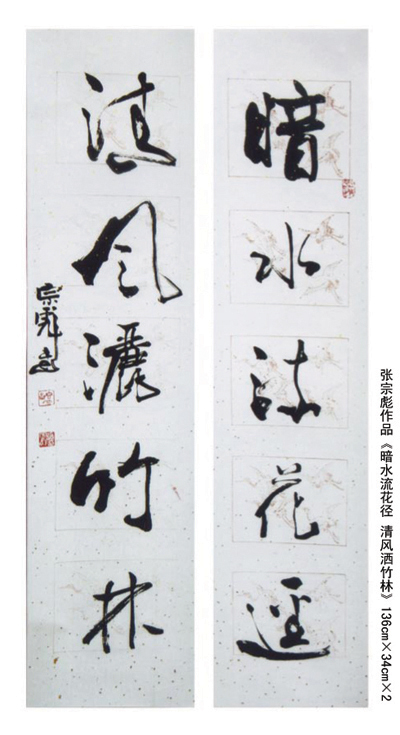 暗水流花迳
清风灑竹林
宗彪
张宗彪作品《暗水流花径 清风洒竹林》136cm×34cm×2